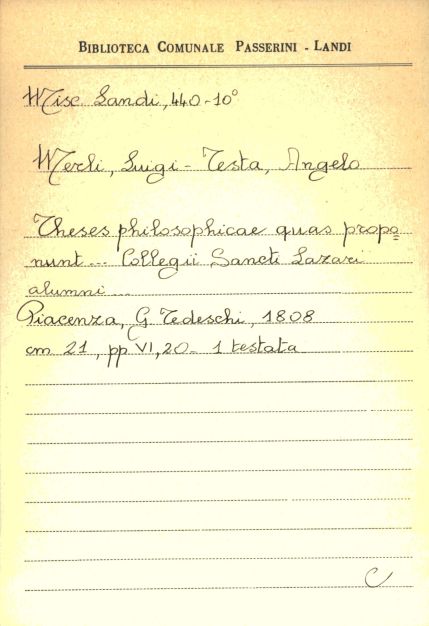 BIBLIOTECA COMUNALE PASSERINI - LANDI
Misc. Landi, 440-10°
Merli, Luigi - Testa, Angelo
Theses philosophicae quas propo
nunt... Collegii Sancti Lazari
alumni...
Piacenza, G. Tedeschi, 1808
cm 21, pp VI, 20 - 1 testata
C